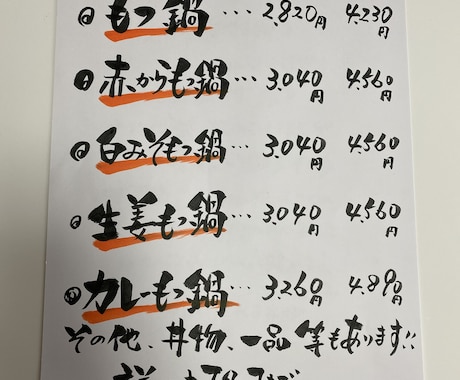 もつ鍋 … 2,820円 4,230円
赤からもつ鍋 … 3,040円 4,560円
白みそもつ鍋 … 3,040円 4,560円
生姜もつ鍋 … 3,040円 4,560円
カレーもつ鍋 … 3,260円 4,890円
その他、丼物、一品等もあります!!